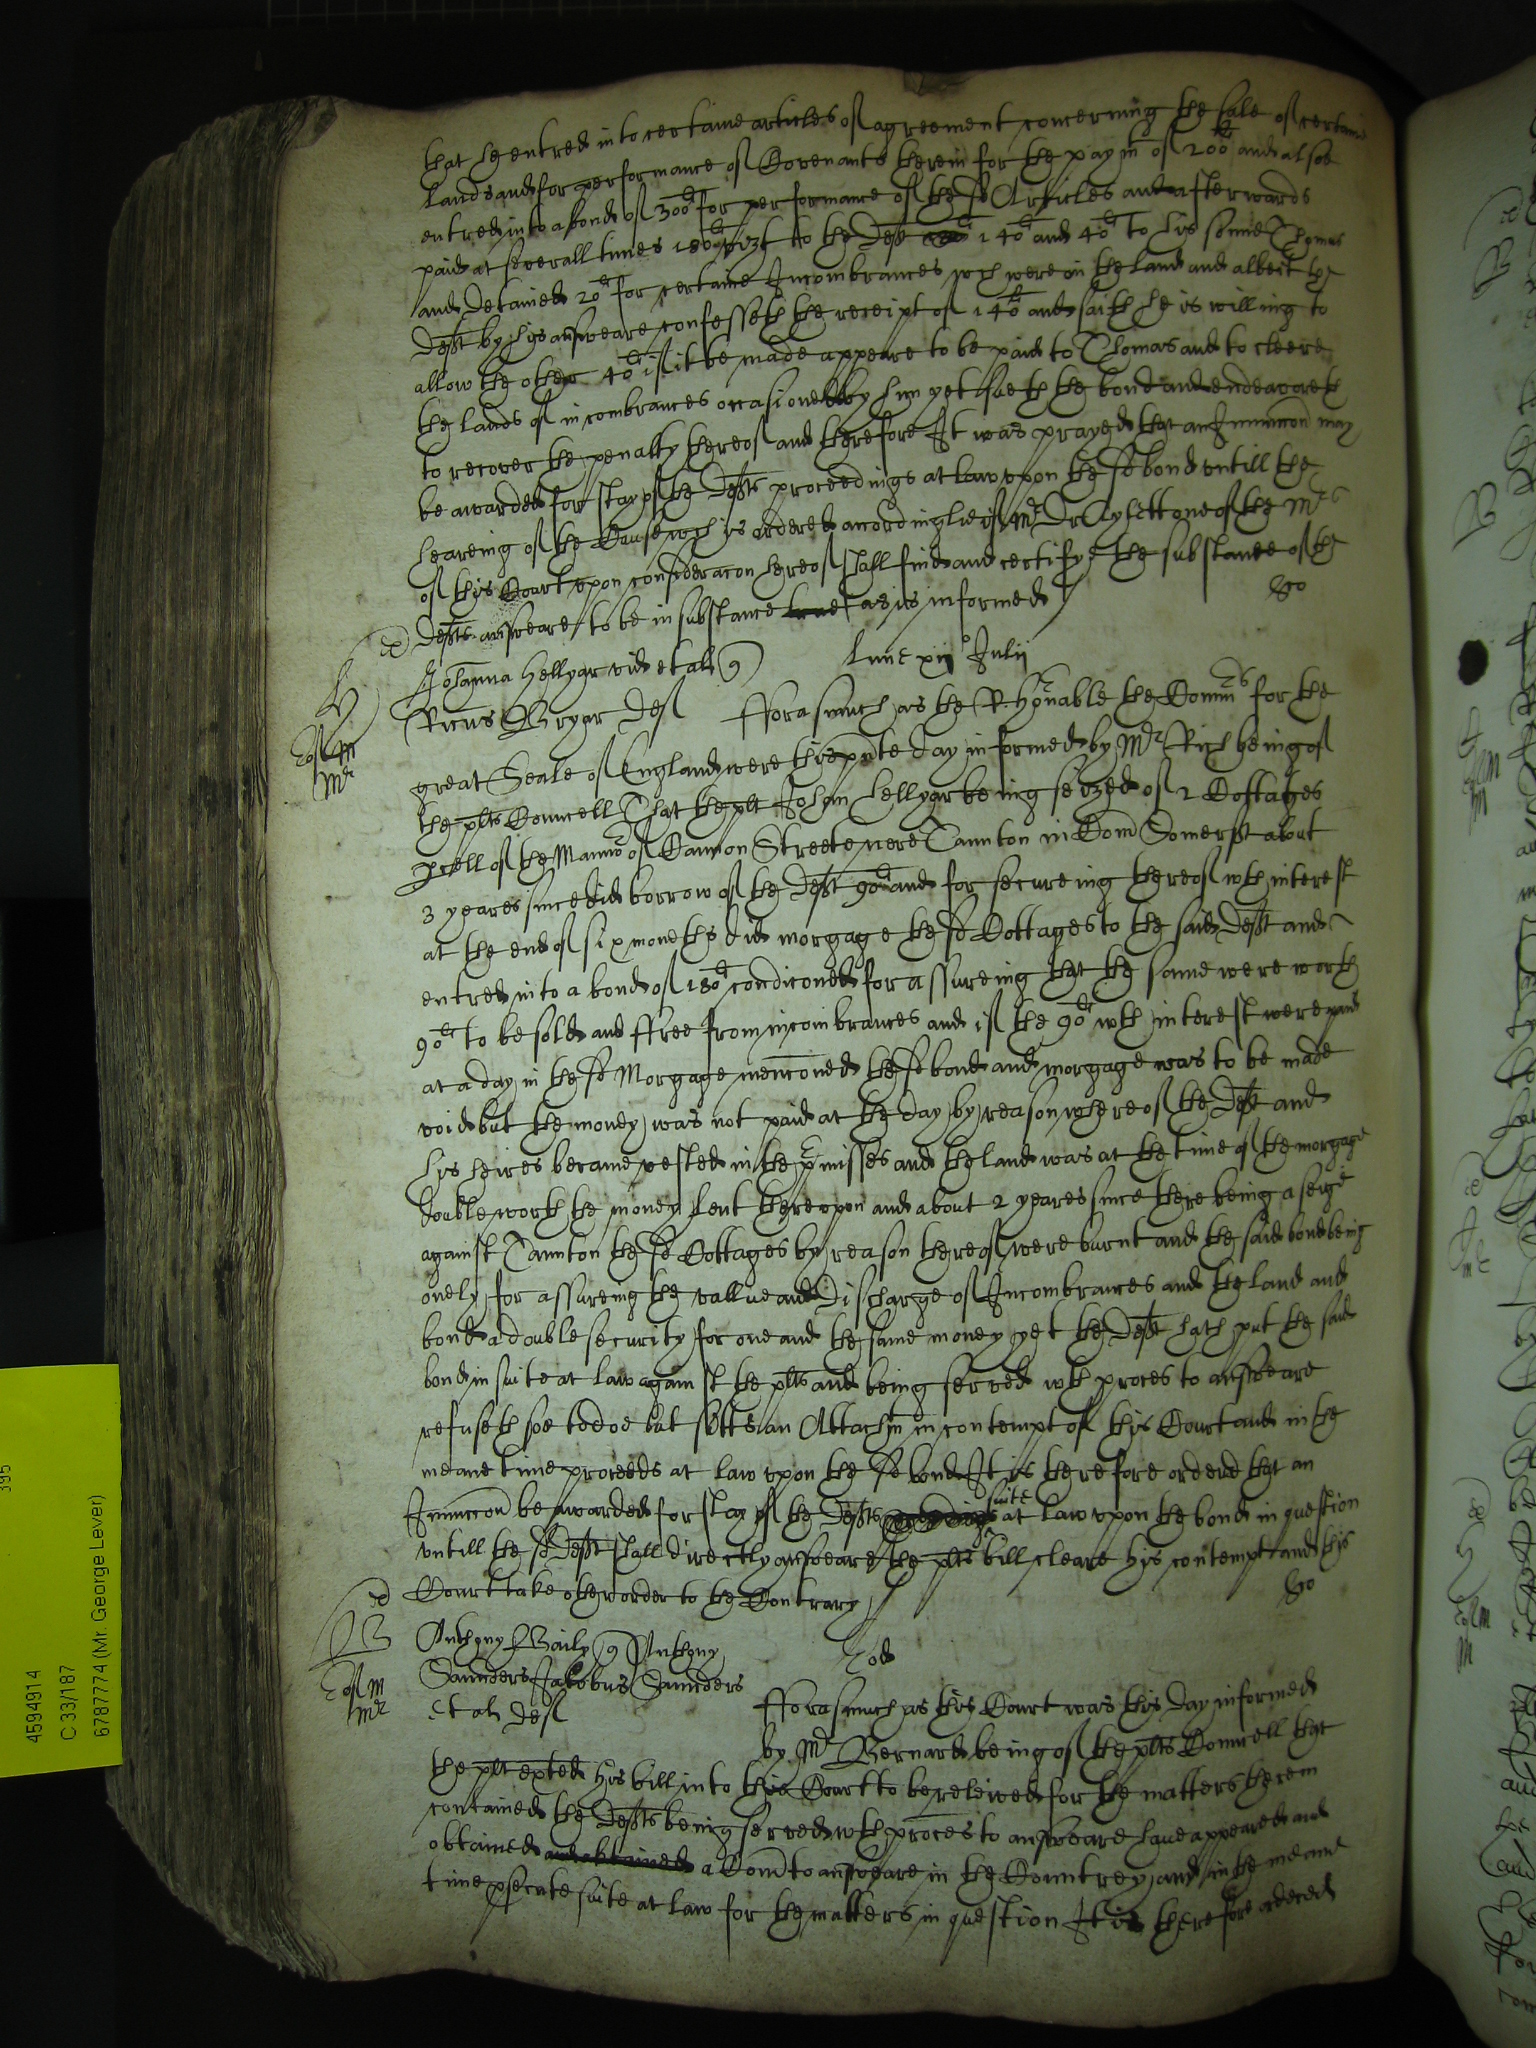 that he entred into certaine articles of agreement concerning the sale of certaine
lands and for performance of Covenants therein for the paym̄t of 200li and alsoe
entred into a bond of 300li for performance of the sd Articles and afterwards
paid at severall times 180li vizt to the Deft 140li and 40li to his sonne Thomas
and Detained 20li for certaine Incombrances wch were on the land and albeit the
Deft by his answeare confesseth the receipt of 140li and saith he is willing to
allow the other 40li if it be made appeare to be paid to Thomas and to cleere
the lands of incombrances occasioned by him yet sueth the bond and endeavoreth
to recover the penalty thereof and therefore It was prayed that an Iniunccōn may
be awarded for stay of the Defts proceedings at law upon the sd bond untill the
heareing of the Cause wch is ordered accordinglie if Mr Dr Aylett one of the Mrs
of this Court upon consideracon hereof shall find and certifye the substance of the
Defts answeare to be in substance true as is informed
Johanna Hellyar vid et al q
Lune xiij Julij
Ricus Bryar Def fforasmuch as the Rt Honable the Commrs for the
great Seale of England were this pn̄te day informed by Mr Rich being of
the plts Councell That the plt John Hellyar being seized of 2 Cottages
pcell of the Mannor of Cannon Streete nere Taunton in Com̄ Somerst about
3 yeares since did borrow of the Deft 90li and for secureing thereof wth interest
at the end of six moneths did morgage the sd Cottages to the said Deft and
entred into a bond of 180li condiconed for assureing that the same were worth
90li to be sold and ffree from incombrances and if the 90li wth interest were paid
at a day in the sd Morgage menconed the sd bond and morgage was to be made
void but the money was not paid at the day by reason whereof the Deft and
his heires became vested in the p̄misses and the land was at the time of the morgage
double worth the money lent thereupon and about 2 yeares since there being a seige
against Taunton the sd Cottages by reason thereof were burnt and the said bond being
onely for assureing the vallue and Discharge of Incombrances and the land and
bond a double security for one and the same money yet the Deft hath put the said
bond in suite at law against the plts and being served wth proces to answeare
refuseth soe to doe but sitts an Attachm̄t in contempt of this Court and in the
meane time proceeds at law upon the sd bond It is therefore ordered that an
Iniunccōn be awarded for stay of the Defts suite at law upon the bond in question
untill the sd Deft shall directly answeare the plts bill cleare his contempt and this
Court take other order to the Contrary
Anthony Baily q Anthony
Eod
Saunders Jacobus Saunders
et al Def fforasmuch as this Court was this day informed
by Mr Bernard being of the plts Councell that
the plt exted his bill into this Court to be releived for the matters therein
contained the Defts being served wth proces to answeare have appeared and
obtained and obtained a Com̄ to answeare in the Countrey and in the meane
time psecute suite at law for the matters in question It is therefore ordered
4594914
C 33/187
6787774 (Mr. George Lever)
395